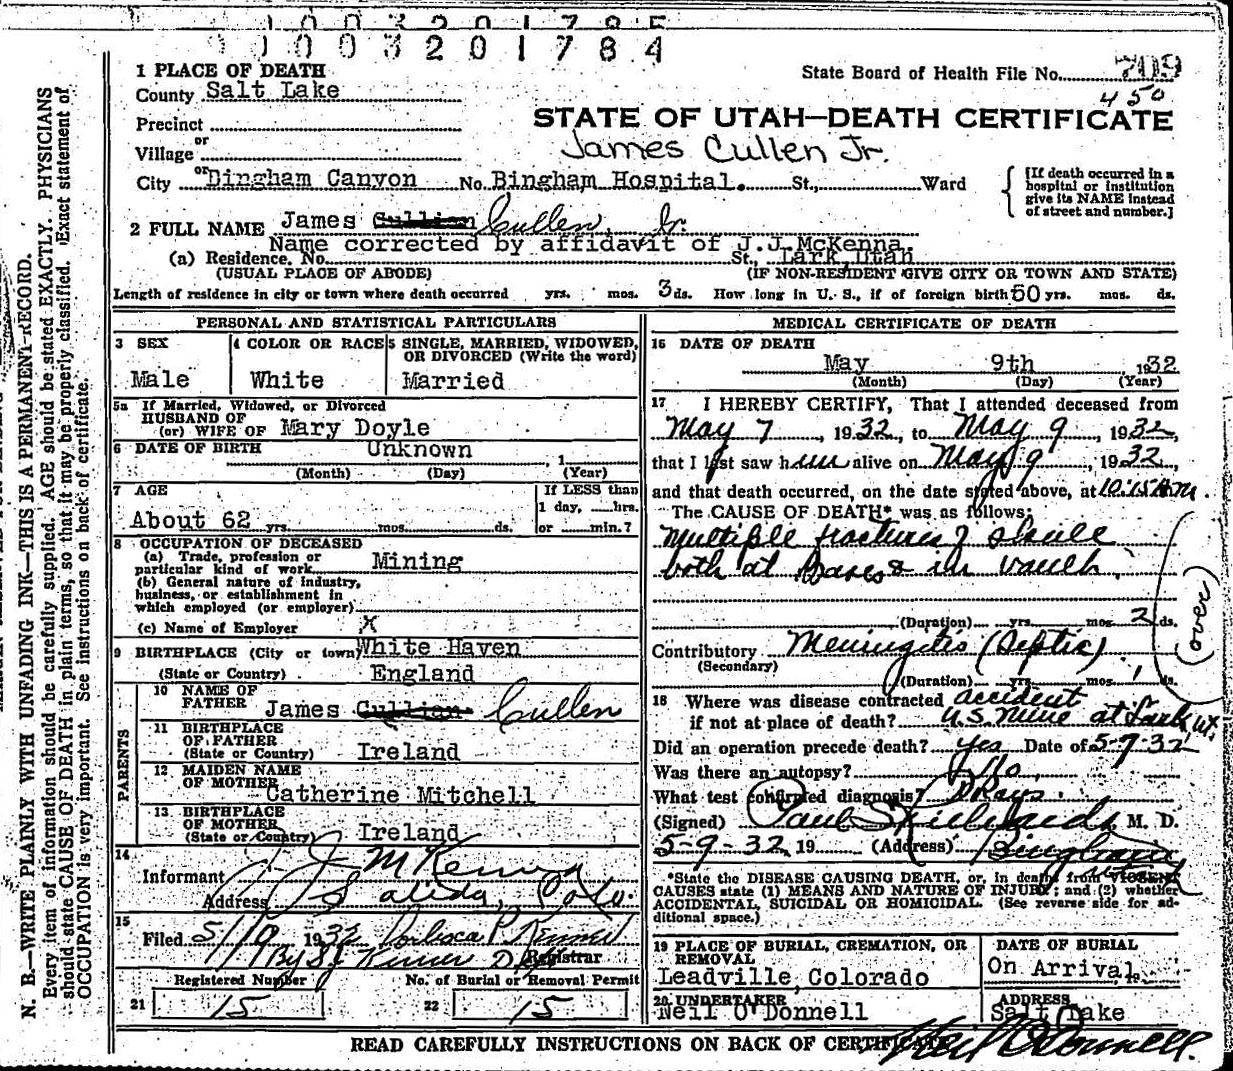 1003201785
1003201784
1 PLACE OF DEATH
State Board of Health File No. 709
County Salt Lake
450
Precinct
STATE OF UTAH—DEATH CERTIFICATE
or
Village
James Cullen Jr.
City or Bingham Canyon No. Bingham Hospital. St., Ward
[If death occurred in a hospital or institution give its NAME instead of street and number.]
2 FULL NAME James Cullian Cullen, Jr.
Name corrected by affidavit of J.J.McKenna.
(a) Residence. No. St., Lark, Utah
(USUAL PLACE OF ABODE) (IF NON-RESIDENT GIVE CITY OR TOWN AND STATE)
Length of residence in city or town where death occurred yrs. mos. 3 ds. How long in U. S., if of foreign birth 50 yrs. mos. ds.
PERSONAL AND STATISTICAL PARTICULARS
3 SEX
Male
4 COLOR OR RACE
White
5 SINGLE, MARRIED, WIDOWED,
OR DIVORCED (Write the word)
Married
5a If Married, Widowed, or Divorced
HUSBAND OF
(or) WIFE OF Mary Doyle
6 DATE OF BIRTH Unknown , 1
(Month) (Day) (Year)
7 AGE
About 62 yrs. mos. ds.
If LESS than
1 day, hrs.
or min.?
8 OCCUPATION OF DECEASED
(a) Trade, profession or
particular kind of work Mining
(b) General nature of industry,
business, or establishment in
which employed (or employer)
(c) Name of Employer X
9 BIRTHPLACE (City or town) White Haven
(State or Country) England
PARENTS
10 NAME OF
FATHER James Cullian Cullen
11 BIRTHPLACE
OF FATHER
(State or Country) Ireland
12 MAIDEN NAME
OF MOTHER Catherine Mitchell
13 BIRTHPLACE
OF MOTHER
(State or Country) Ireland
14
Informant J. J. McKenna
Address Salida, Colo.
15
Filed 5/19 1932
Registrar
Registered Number No. of Burial or Removal Permit
21 15 22 15
MEDICAL CERTIFICATE OF DEATH
16 DATE OF DEATH
May 9th 1932
(Month) (Day) (Year)
17 I HEREBY CERTIFY, That I attended deceased from
May 7, 1932, to May 9, 1932,
that I last saw him alive on May 9, 1932,
and that death occurred, on the date stated above, at 10:15 A.m.
The CAUSE OF DEATH* was as follows:
Multiple fractures of skull
both at Bases & in vault.
(Duration) yrs. mos. 2 ds.
(over)
Contributory Meningitis (Septic)
(Secondary)
(Duration) yrs. mos. 1 ds.
18 Where was disease contracted accident
if not at place of death? U.S. Mine at Lark, Ut.
Did an operation precede death? Yes Date of 5-7-32
Was there an autopsy? No.
What test confirmed diagnosis? XRays.
(Signed) Paul S. Richards, M. D.
5-9-32, 19 (Address) Bingham
*State the DISEASE CAUSING DEATH, or, in deaths from VIOLENT
CAUSES state (1) MEANS AND NATURE OF INJURY; and (2) whether
ACCIDENTAL, SUICIDAL OR HOMICIDAL. (See reverse side for ad-
ditional space.)
19 PLACE OF BURIAL, CREMATION, OR
REMOVAL
Leadville, Colorado
DATE OF BURIAL
On Arrival
20 UNDERTAKER
Neil O'Donnell
ADDRESS
Salt Lake
Neil O'Donnell.
READ CAREFULLY INSTRUCTIONS ON BACK OF CERTIFICATE
N. B.—WRITE PLAINLY WITH UNFADING INK—THIS IS A PERMANENT RECORD.
Every item of information should be carefully supplied. AGE should be stated EXACTLY. PHYSICIANS
should state CAUSE OF DEATH in plain terms, so that it may be properly classified. Exact statement of
OCCUPATION is very important. See instructions on back of certificate.